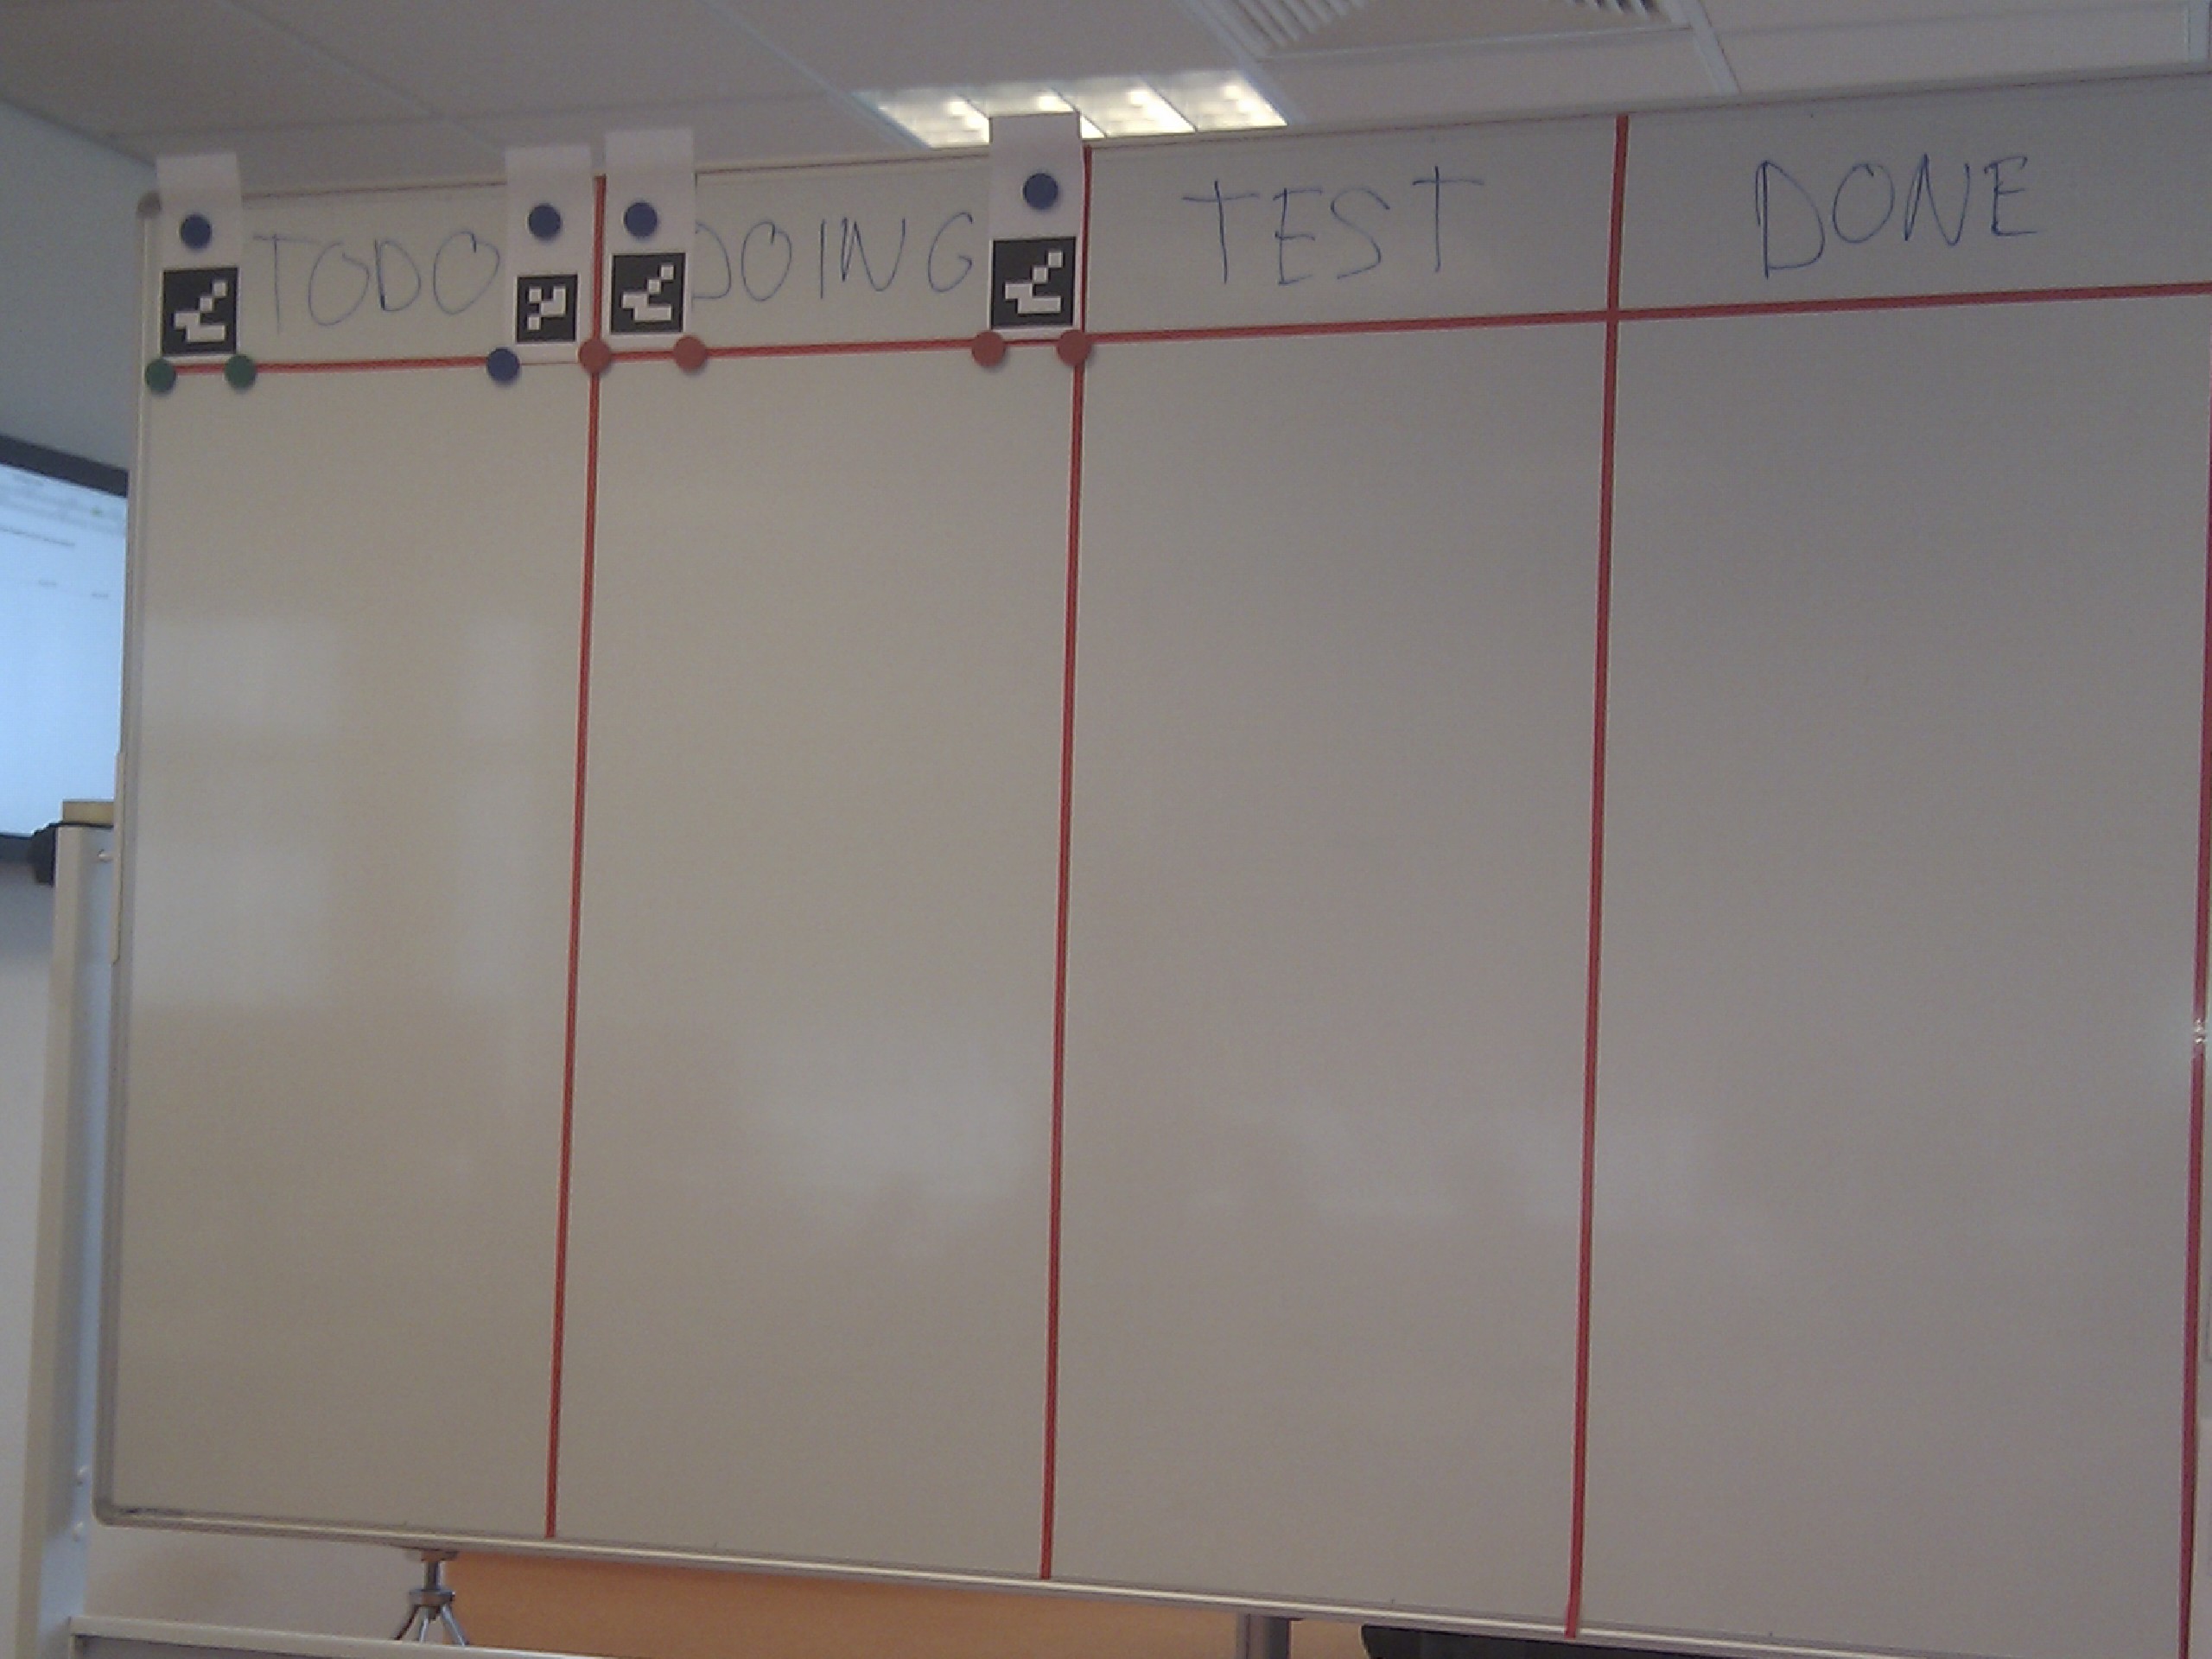 TODO DOING TEST DONE